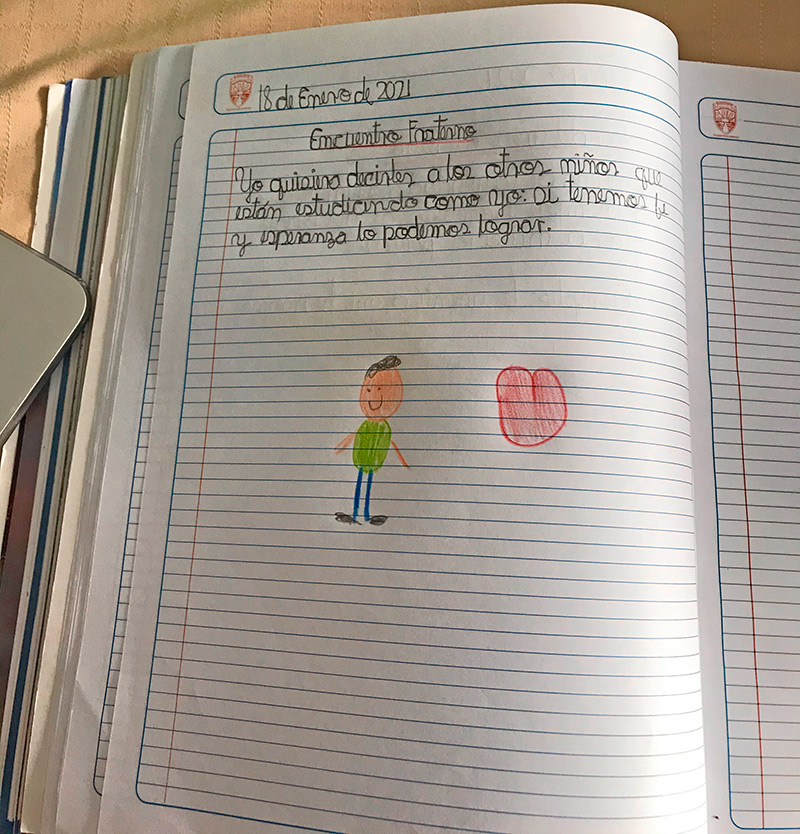 18 de Enero de 2021
Encuentro Fraterno
Yo quisiera decirles a los otros niños que
están estudiando como yo: si tenemos fe
y esperanza lo podemos lograr.